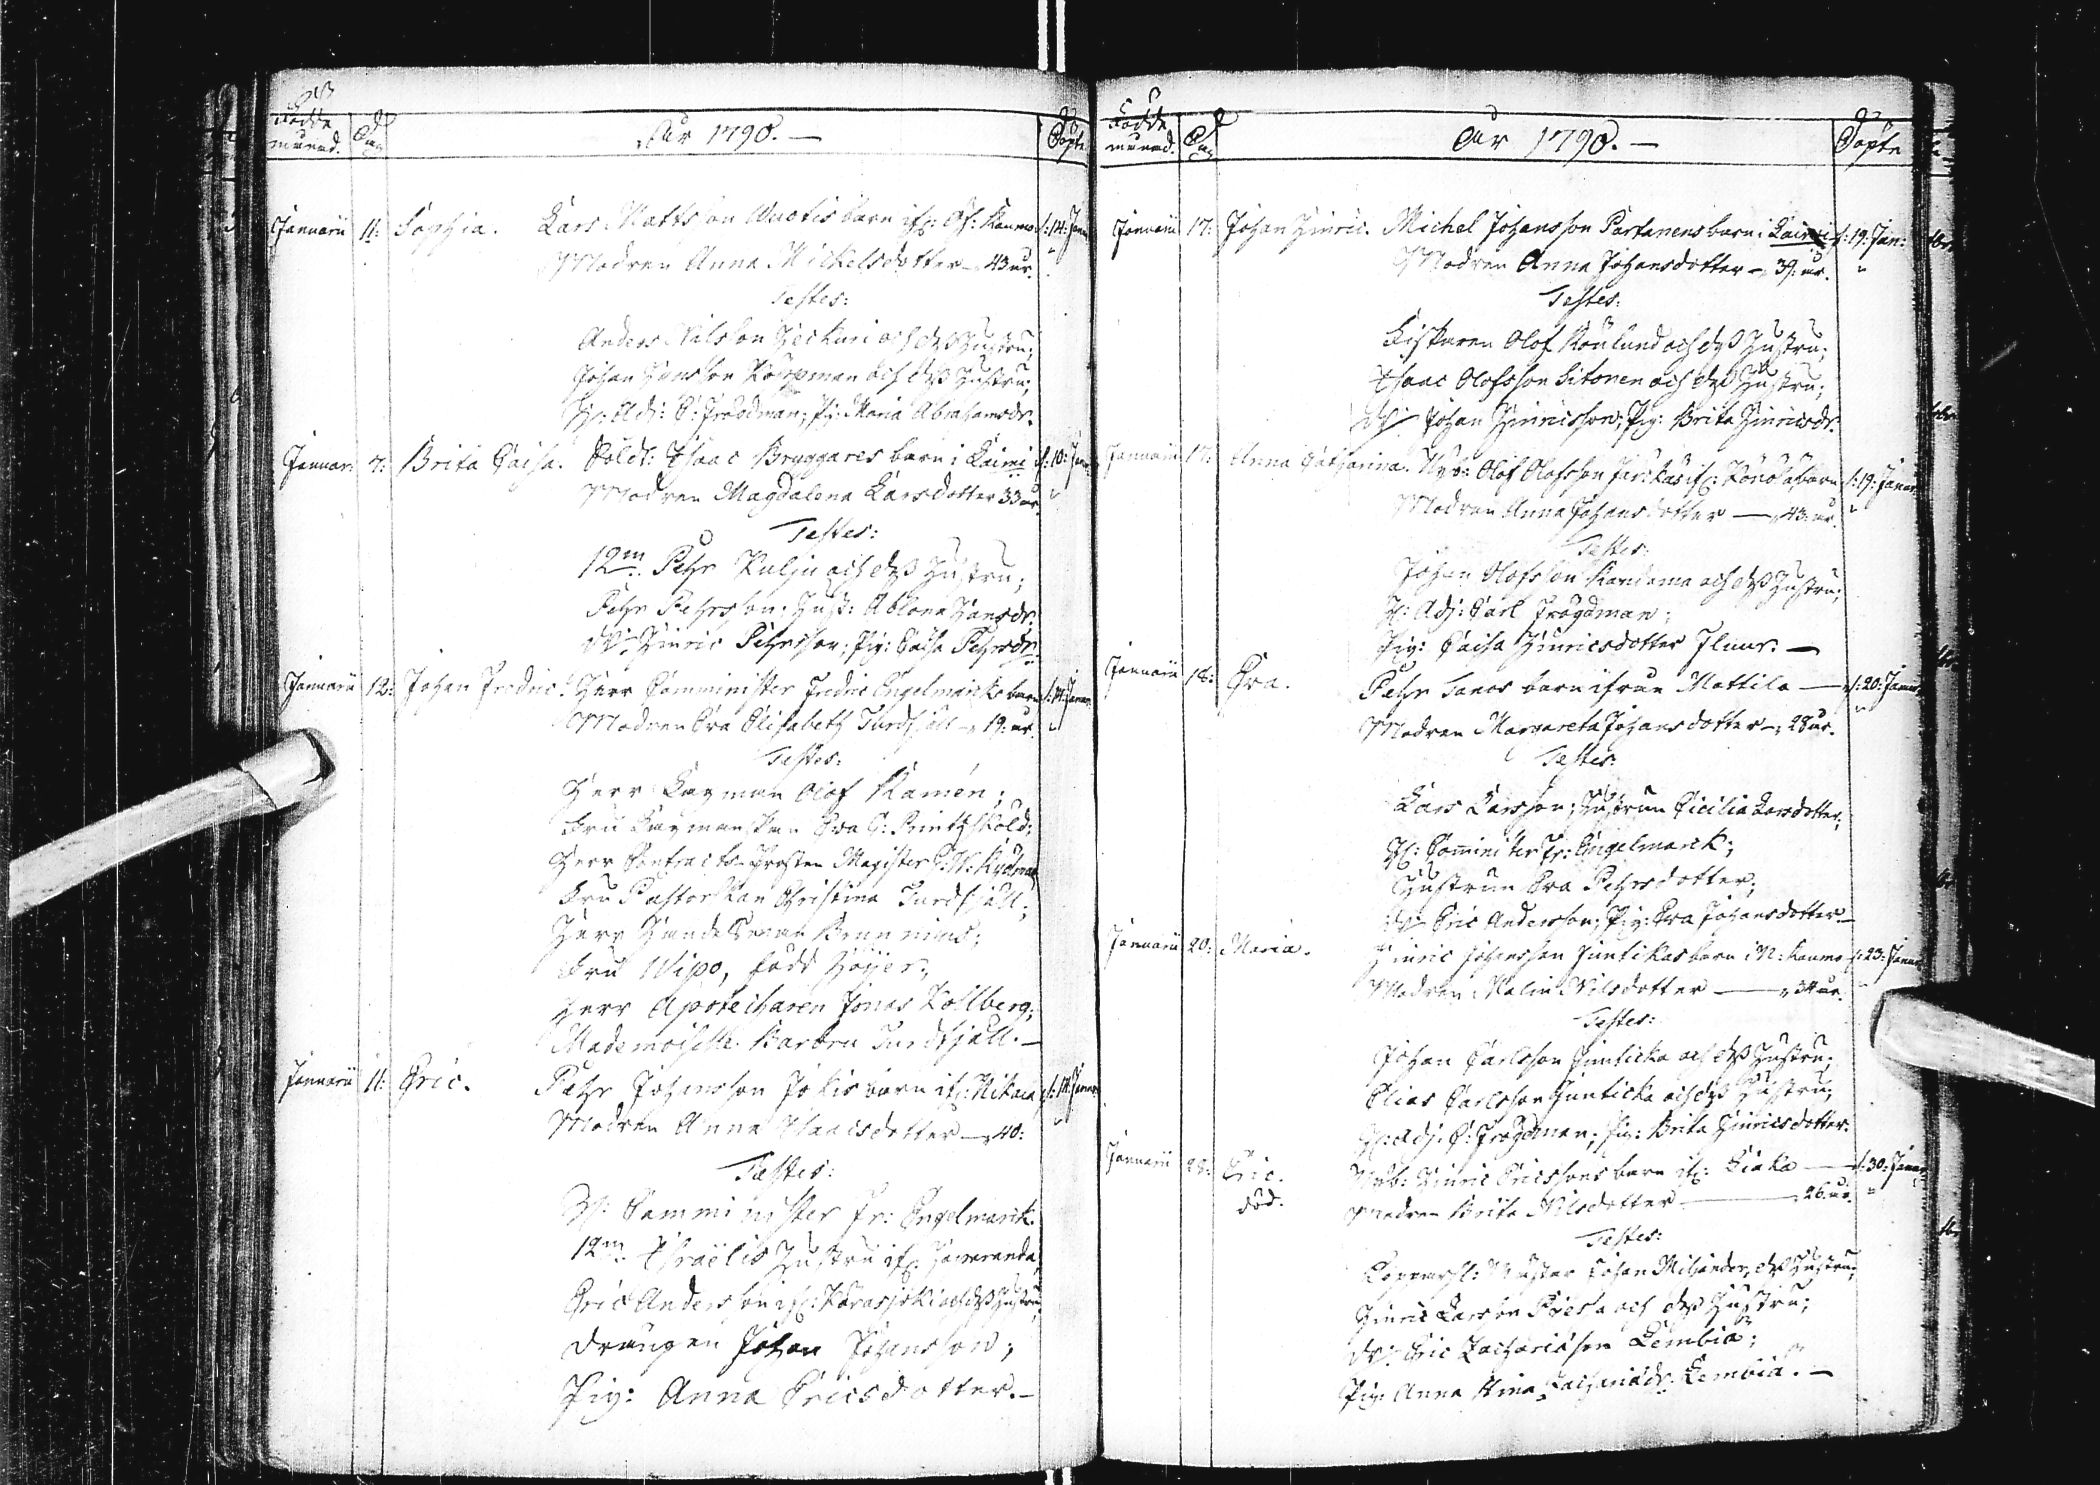 Födde
månad. Dag
År 1790. —
Döpte
Januarii 11: Sophia. Lars Mattsson Wuotis barn ifr: Öf: Kaumo d: 14: Janu
Modren Anna Mickelsdotter — 43 år.
Testes:
Anders Nilsson och dess Hustru;
Johan Hansson Koopman och dess Hustru;
H: Adj: C: Frögdman; Pig: Maria Abrahamsdr.
Januar: 7: Brita Caisa. Sold: Isaac Bruggares barn i Kaimi d: 10: Jan
Modren Magdalena Larsdotter 33 år.
Testes:
12m. Pehr Kulju och dess Hustru;
Pehr Pehrsson. Hust: Ablona Hansdr.
Dr: Hinric Pehrsson; Pig: Caisa Pehrsdr.
Januarii 12: Johan Fredric. Herr Comminister Fredric Engelmarcks barn d: 14: Januar
Modren Eva Elisabeth Turdfjäll — 19: år.
Testes:
Herr Lagman Olof Ramén;
Fru Lagmanskan Eva G: Printzsköld;
Herr Contracts-Prosten Magister
Fru Pastorskan Christina Turdfjäll;
Herr
Fru Wipo, född Höijer;
Herr Apothecaren Jonas Kollberg;
Mademoiselle Barbru Turdfjäll. —
Januarii 11: Eric. Pehr Johansson Jokis barn ifr: d: 14: Januar
Modren Anna Isaacsdotter — 40:
Testes:
H: Comminister Fr: Engelmarck.
12m. Israëlis Hustru ifr:
Eric Andersson ifr: och dess Hustru;
Drängen Johan Johansson;
Pig: Anna Ericsdotter. —
Födde
månad. Dag
År 1790. —
Döpte
Januarii 17: Johan Hinric. Michel Johansson Partanens barn i d: 19: Jan:
Modren Anna Johansdotter — 39: år.
Testes:
Olof Rönlund och dess Hustru;
Isaac Olofsson Sitonen och dess Hustru;
Dr: Johan Hinricsson; Pig: Brita Hinricsdr.
Januarii 17: Anna Catharina. Nyb: Olof Olofsson barn d: 19: Januar
Modren Anna Johansdotter — 43: år.
Testes:
Johan Olofsson och dess Hustru;
H: Adj: Carl Frögdman;
Pig: Caisa Hinricsdotter —
Januarii 18: Eva. Pehr Tanos barn ifrån Mattila — d: 20: Januar
Modren Margareta Johansdotter — 28 år.
Testes:
Lars Larsson; Hustrun Cicilia Larsdotter;
H: Comminister Fr: Engelmarck;
Hustrun Eva Pehrsdotter;
Dr: Eric Andersson; Pig: Eva Johansdotter —
Januarii 20: Maria. Hinric Johansson Juntikas barn i N: Kaumo d: 23: Januar
Modren Malin Nilsdotter — 34 år.
Testes:
Johan Carlsson Junticka och dess Hustru;
Elias Carlsson Junticka och dess Hustru;
H: Adj: C: Frögdman; Pig: Brita Hinricsdotter.
Januarii 28: Eric. Nyb: Hinric Ericssons barn ifr: — d: 30: Januar
död. Modren Brita Nilsdotter — 26 år.
Testes:
Coppersl: Mäster Johan Miljander, dess Hustru;
Hinric Larsson och dess Hustru;
Dr: Eric Zachariæson Lembia;
Pig: Anna Stina Zachariædr. Lembia. —